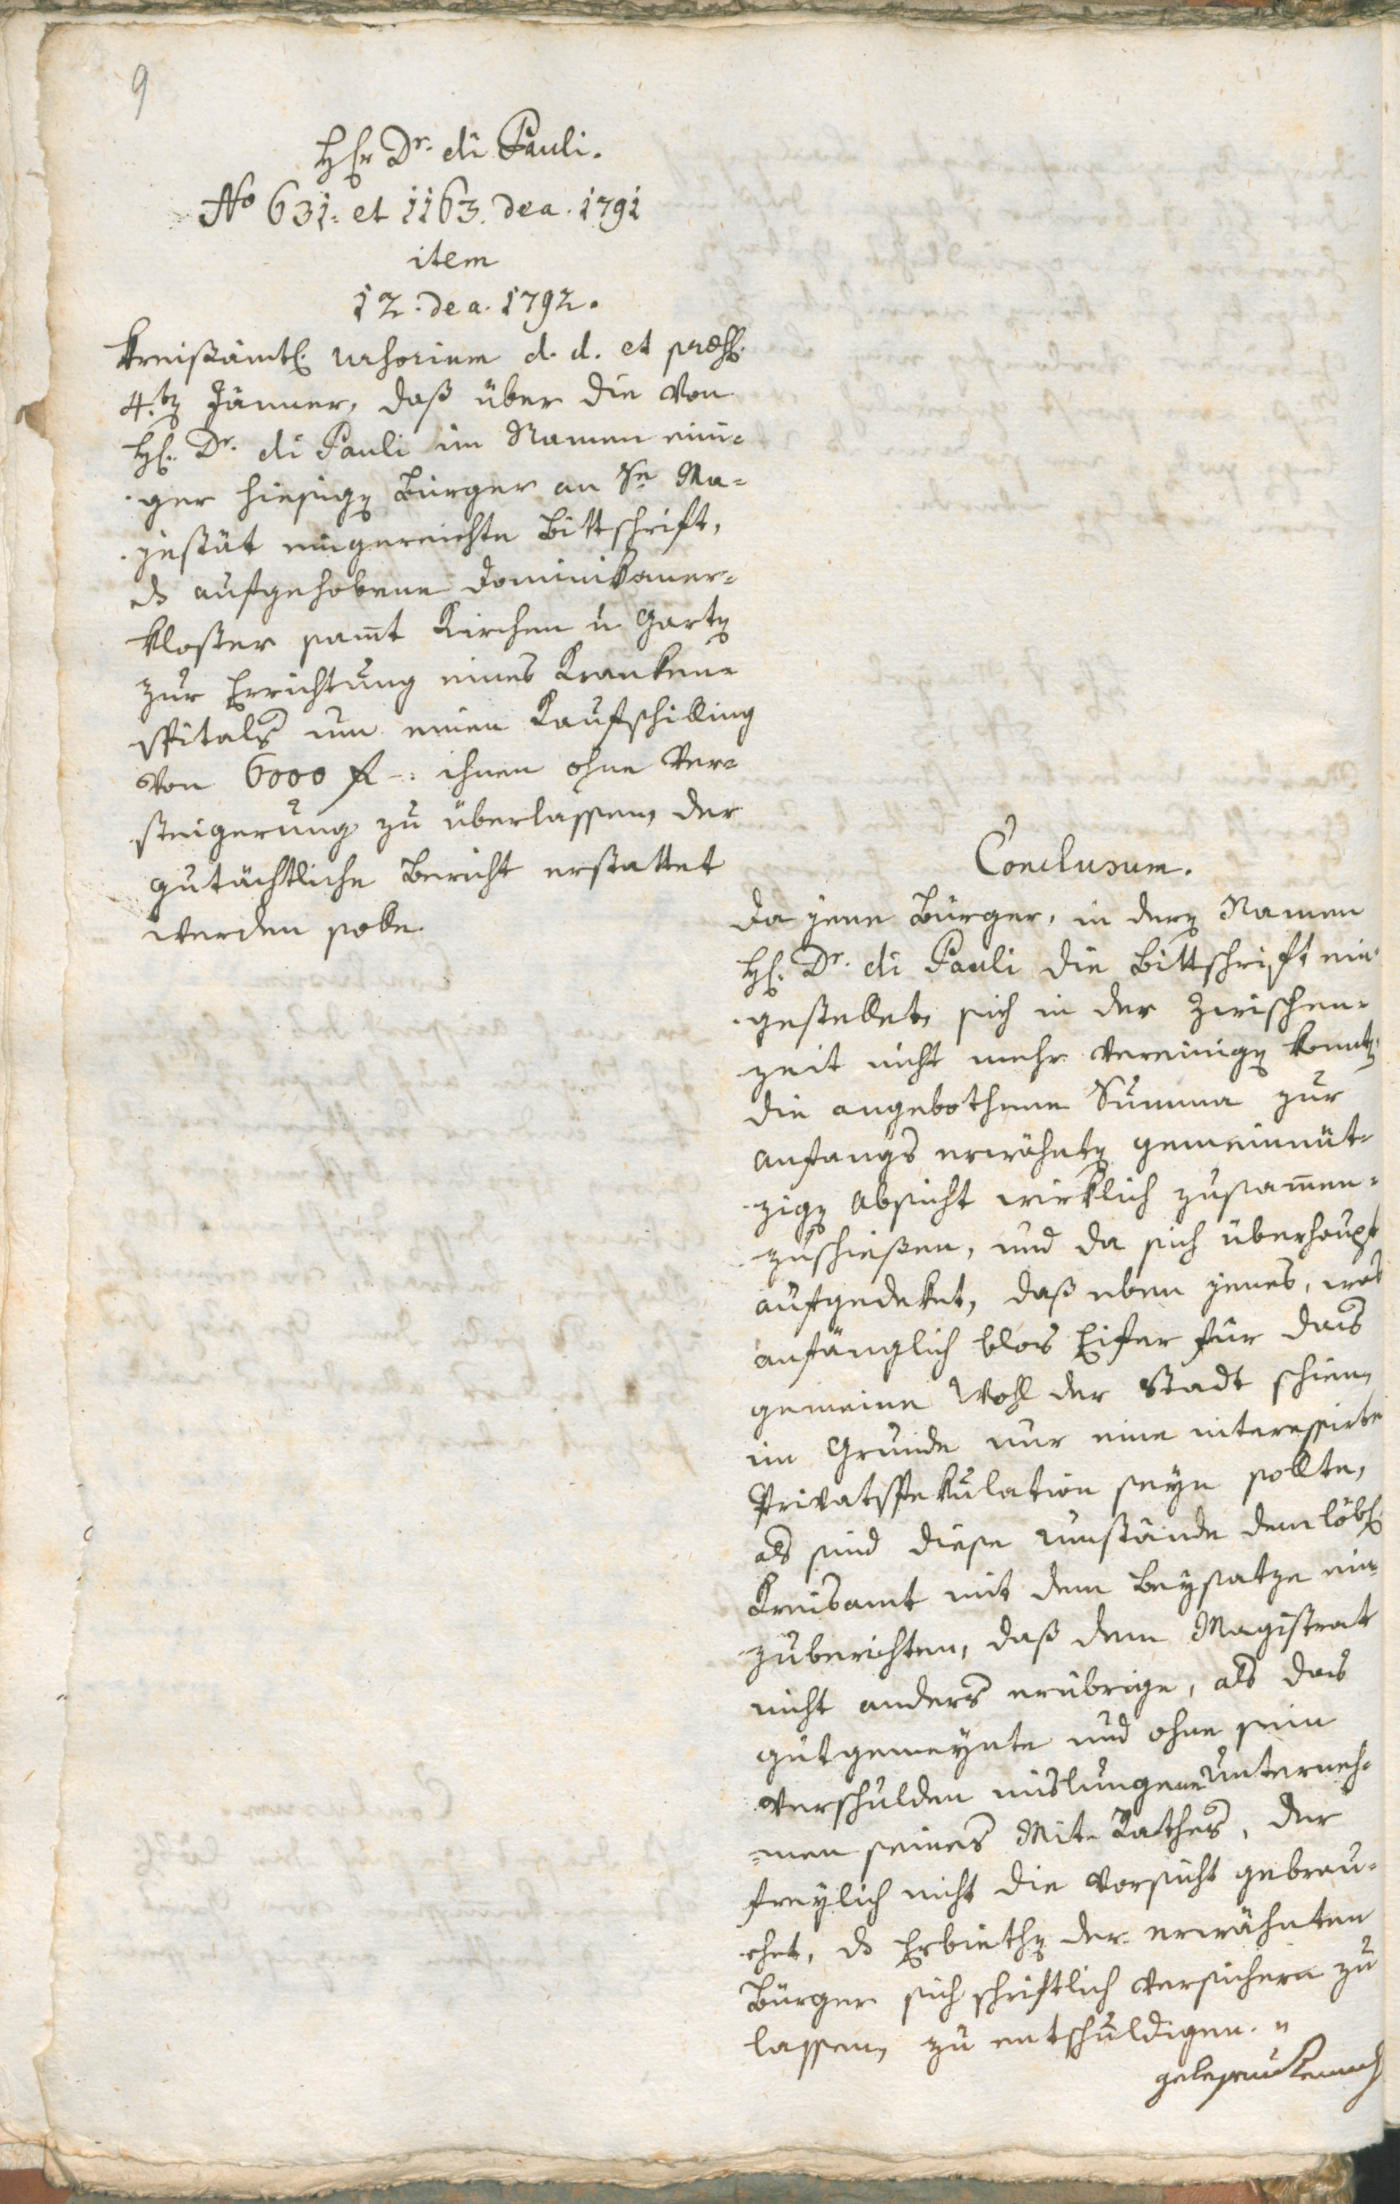 9
H[er]r Dr. di Pauli.
No 631. et 1163. de a. 1791
item
12. de a. 1792.
Kreißämtl. urhorium d. d. et praes.
4.ten Jänner, daß über die von
H. Dr. di Pauli im Namen eini-
ger hiesigen Bürger an Se Ma-
jestät eingereichte Bittschrift,
ds aufgehobene Dominikaner-
kloster samt Kirchen u Garten
zur Errichtung eines Kranken-
spitals um einen Kaufschilling
von 6000 f -: ihnen ohne Ver-
steigerung zu überlassen, der
gutächtliche Bericht erstattet
werden solle.
Conclusum.
Da jene Bürger, in deren Namen
H. Dr. di Pauli die Bittschrift ein-
gestellet, sich in der Zwischen-
zeit nicht mehr vereinigen konnten,
die angebothene Summa zur
anfangs erwähnten gemeinnüt-
zigen Absicht wirklich zusamen-
zuschießen, und da sich überhaupt
aufgedeket, daß eben jenes, was
anfänglich blos Eifer für das
gemeine Wohl der Stadt schien,
im Grunde nur eine interessirte
Privatspekulation seyn sollte,
als sind diese Umstände dem löbl.
Kreisamt mit dem Beysatze ein-
zuberichten, daß dem Magistrat
nicht anders erübrige, als das
gutgemeynte und ohne sein
Verschulden mislungene Unterneh-
men seines Mit-Rathes, der
freylich nicht die Vorsicht gebrau-
chet, ds Erbiethen der erwähnten
Bürger sich schriftlich versichern zu
lassen, zu entschuldigen. "